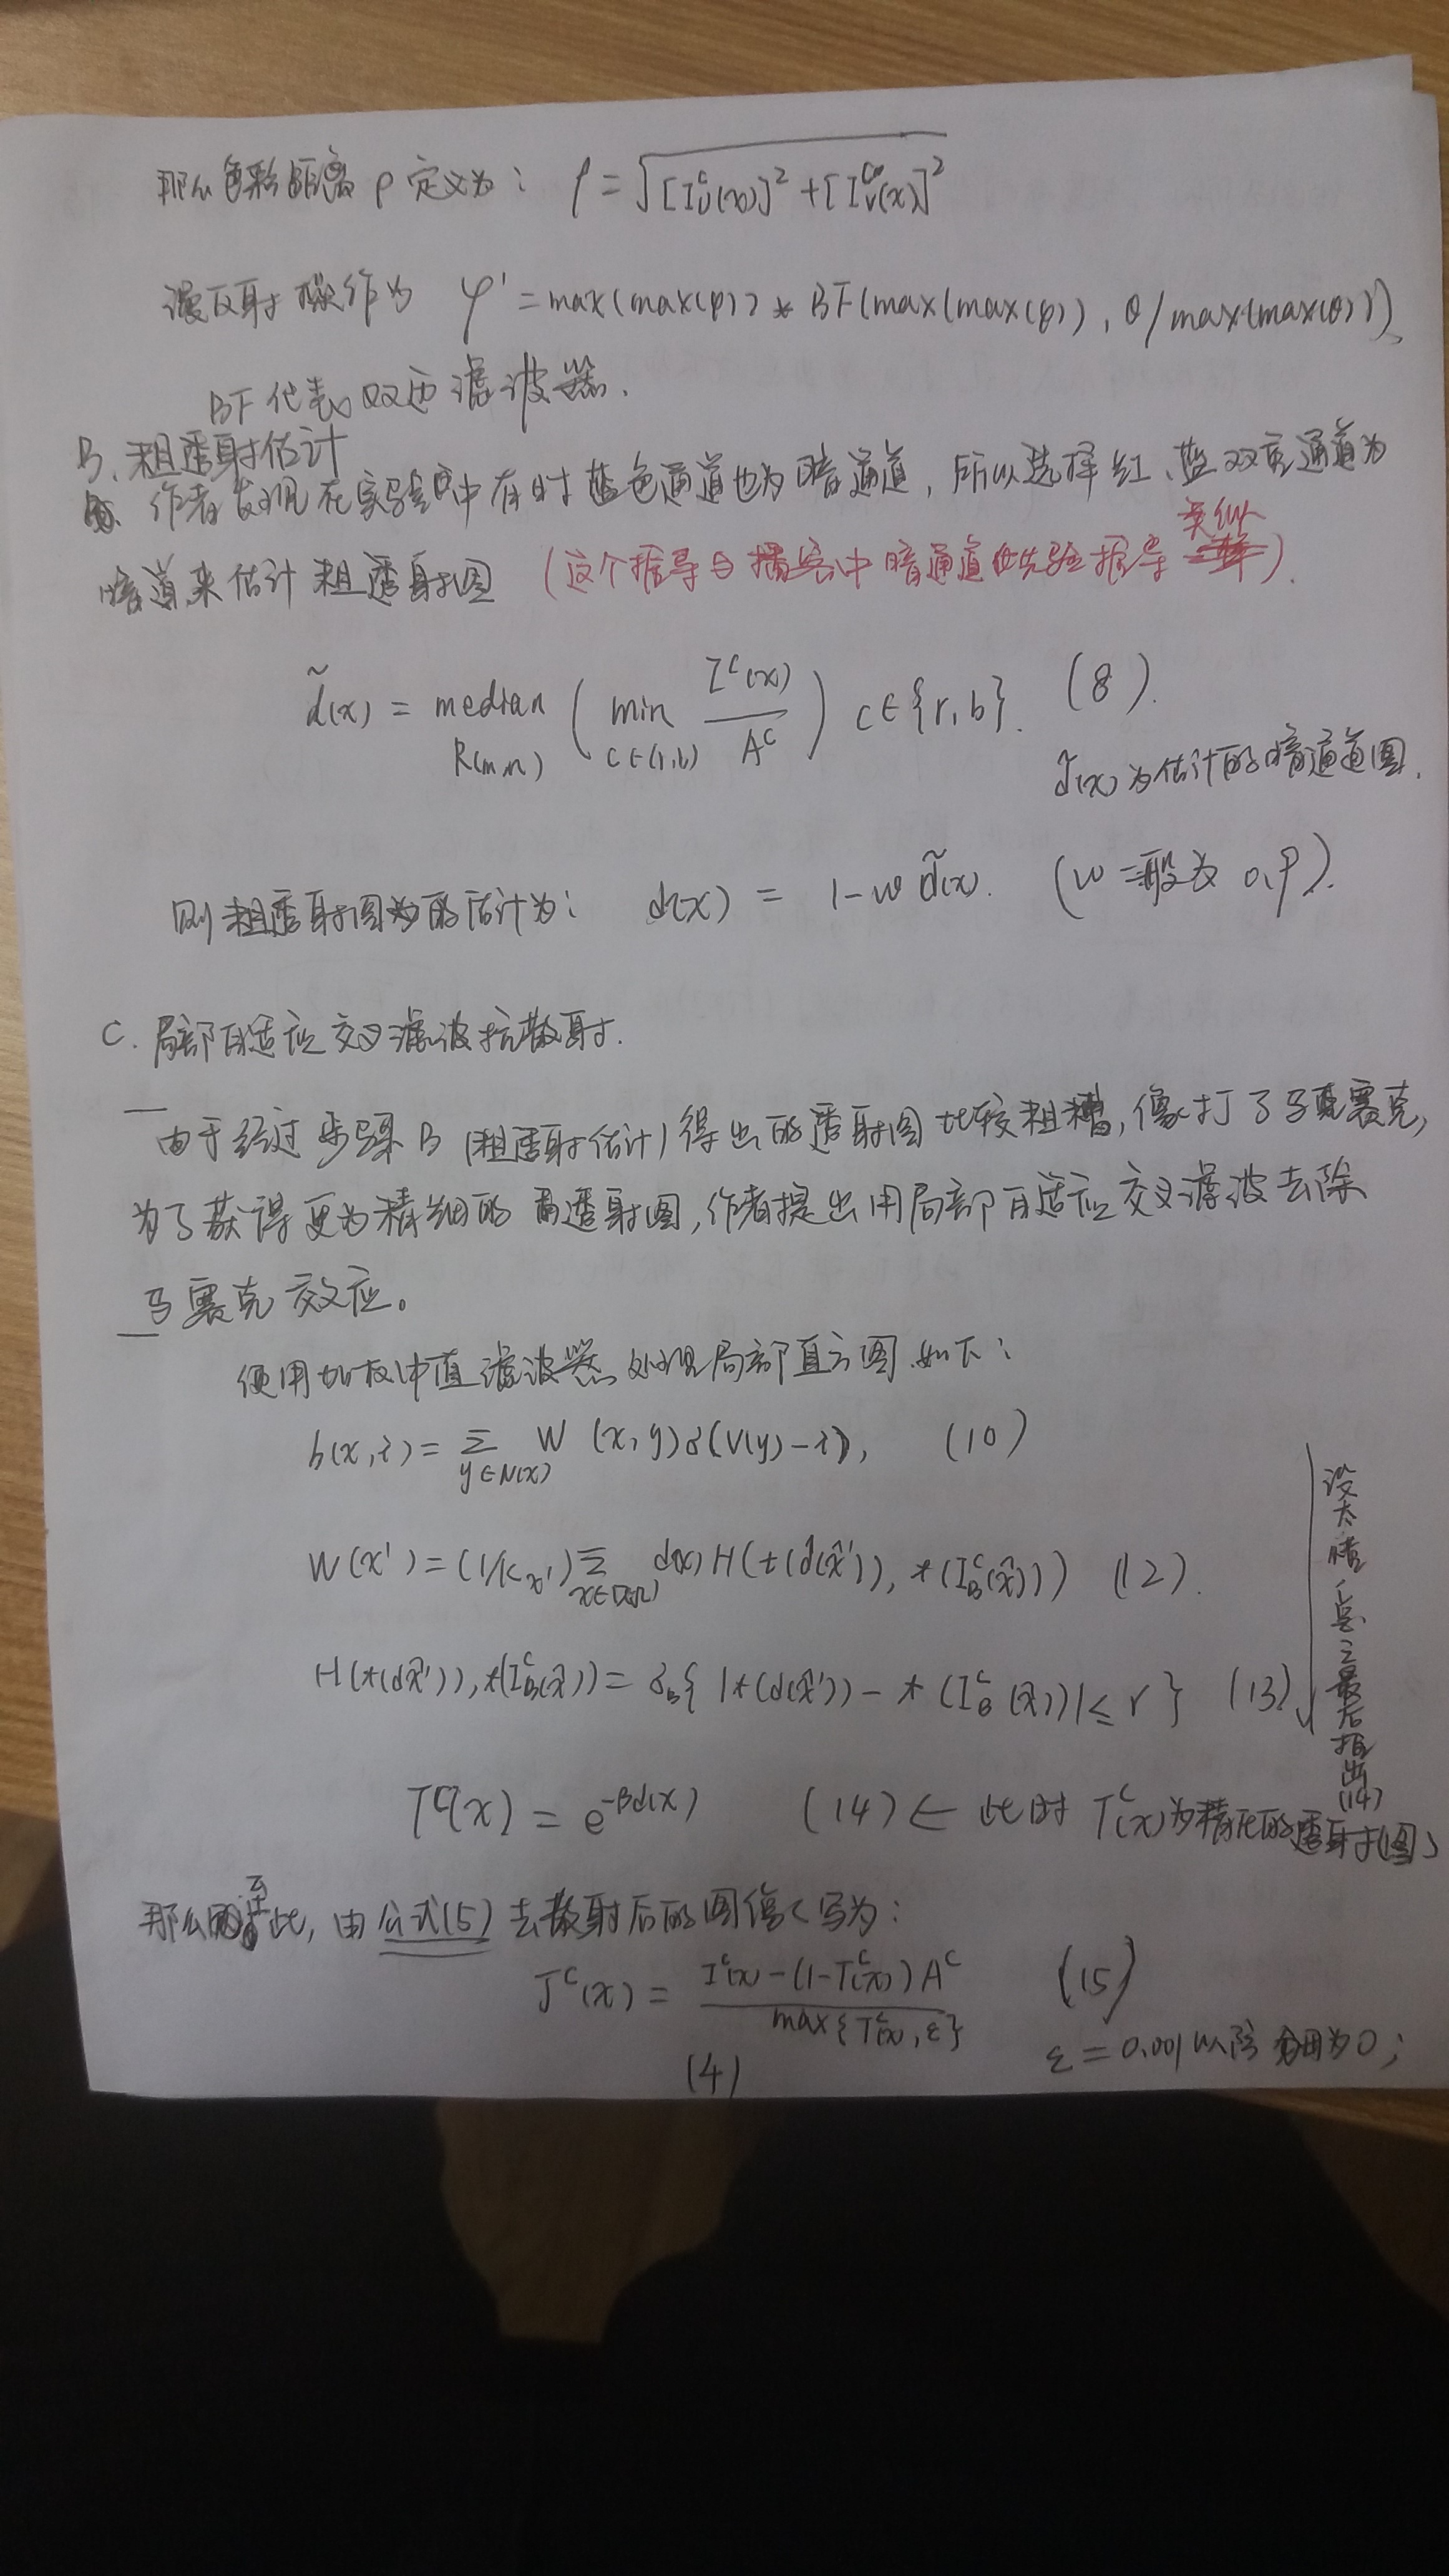 那么色彩距离ρ定义为： ρ=√([I_U^c(x)]² + [I_V^c(x)]²)
漫反射操作为 φ' = max(max(φ)) * BF(max(max(φ)), θ/max(max(θ)))、
BF代表双边滤波器.
B、粗透射估计
作者发现在实验中有时蓝色通道也为暗通道，所以选择红、蓝双重通道为
暗道来估计粗透射图 (这个推导与播客中暗通道先验推导类似).
d̃(x) = median_{R(m,n)} ( min_{c∈(r,b)} I^c(x)/A^c ) c∈{r,b}. (8).
d̃(x)为估计的暗通道图.
则粗透射图的估计为： d(x) = 1-w d̃(x). (w一般为 0.9).
C. 局部自适应交叉滤波抗散射.
由于经过步骤B (粗透射估计) 得出的透射图比较粗糙，像打了马赛克，
为了获得更为精细的透射图，作者提出用局部自适应交叉滤波去除
马赛克效应。
使用加权中值滤波器处理局部直方图.如下：
h(x,i) = Σ_{y∈N(x)} W(x,y)δ(V(y)-i), (10)
W(x') = (1/K_{x'}) Σ d(x) H(t(d(x̂')), *(I_B^c(x̂))) (12).
H(*(d(x̂')), *(I_B^c(x̂)) = δ_B{ |*(d(x̂')) - *(I_B^c(x̂))| ≤ r } (13)
没太懂，总之最后推出(14)
T^c(x) = e^{-βd(x)} (14) ← 此时 T^c(x)为精化的透射图
那么至此，由公式(5)去散射后的图像写为：
J^c(x) = (I^c(x) - (1-T^c(x))A^c) / max{T^c(x), ε} (15)
ε = 0.001 以防 为0；
(4)